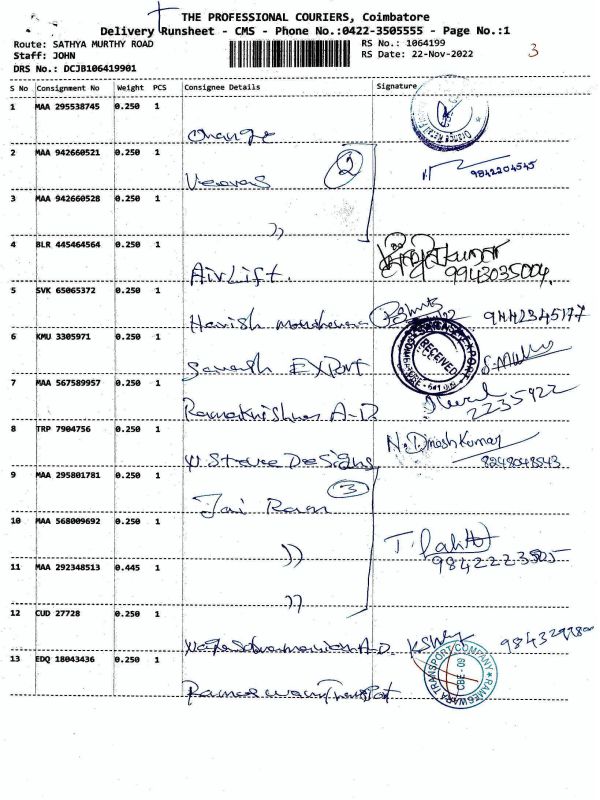 THE PROFESSIONAL COURIERS, Coimbatore
Delivery Runsheet - CMS - Phone No.:0422-3505555 - Page No.:1
Route: SATHYA MURTHY ROAD
RS No.: 1064199
Staff: JOHN
RS Date: 22-Nov-2022
3
DRS No.: DCJB106419901
S No Consignment No Weight PCS Consignee Details Signature
1 MAA 295538745 0.250 1
orange
2 MAA 942660521 0.250 1
2
9842204545
3 MAA 942660528 0.250 1
”
4 BLR 445464564 0.250 1
AirLift.
9943035004.
5 SVK 65065372 0.250 1
Harish
9442345177
6 KMU 3305971 0.250 1
RECEIVED
EXPORT
7 MAA 567589957 0.250 1
Ramakrishnan A-D.
2235922
8 TRP 7904756 0.250 1
N. Dinesh Kumar
Designs
8248048543
9 MAA 295801781 0.250 1
3
Jai Ram
10 MAA 568009692 0.250 1
”
11 MAA 292348513 0.445 1
9842223505
”
12 CUD 27728 0.250 1
A-D.
13 EDQ 18043436 0.250 1
RAMESWARA TRANSPORT COMPANY
CBE - 09